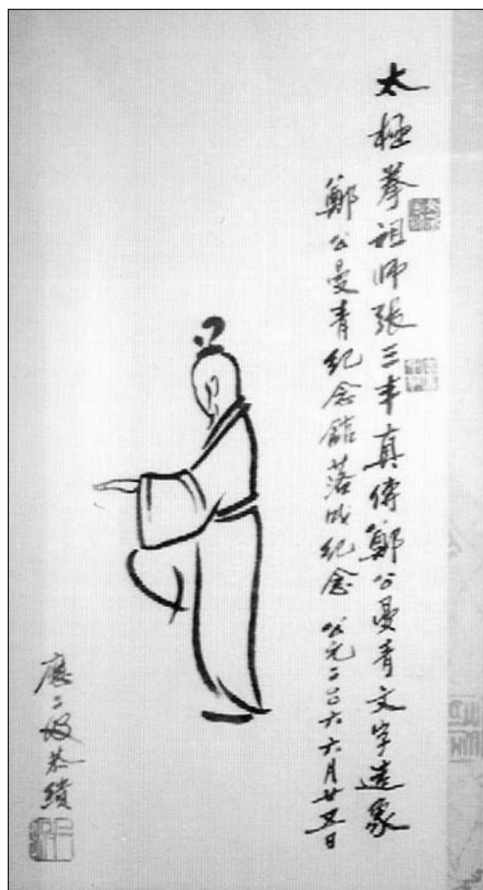 太極拳祖師張三丰真傳鄭公曼青文字造象
鄭公曼青紀念館落成紀念 公元二〇〇六六月廿五日
應二恭